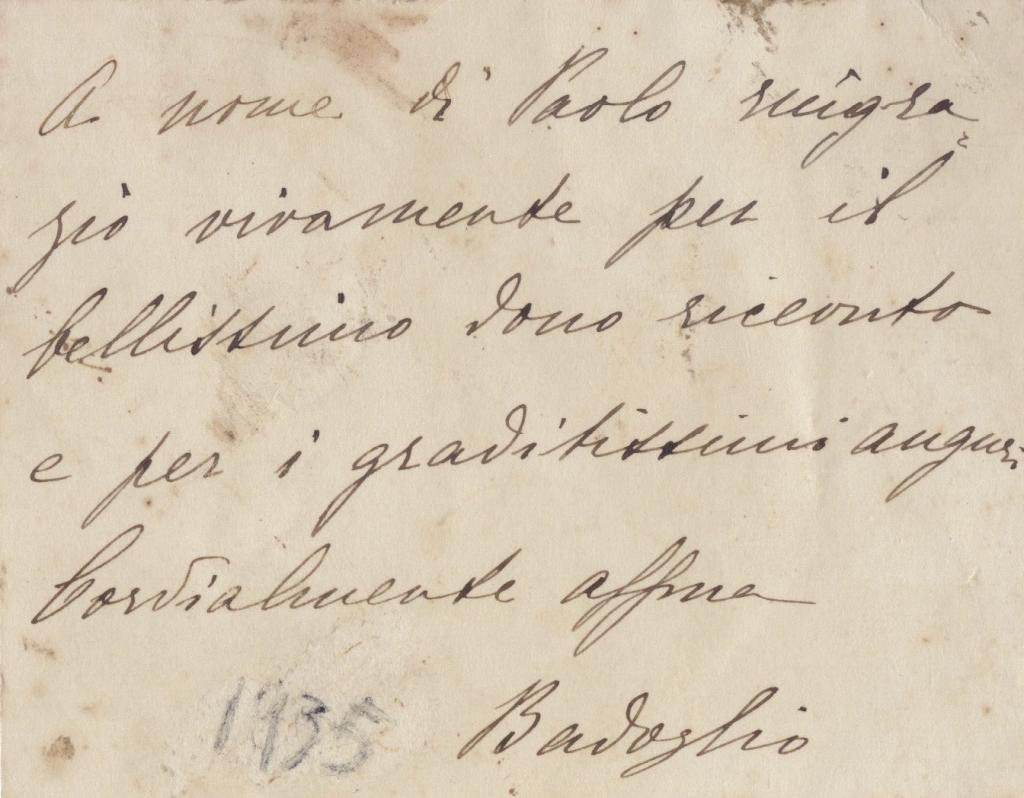 A nome di Paolo ringra=
zio vivamente per il
bellissimo dono ricevuto
e per i graditissimi auguri
Cordialmente affma
1935 Badoglio